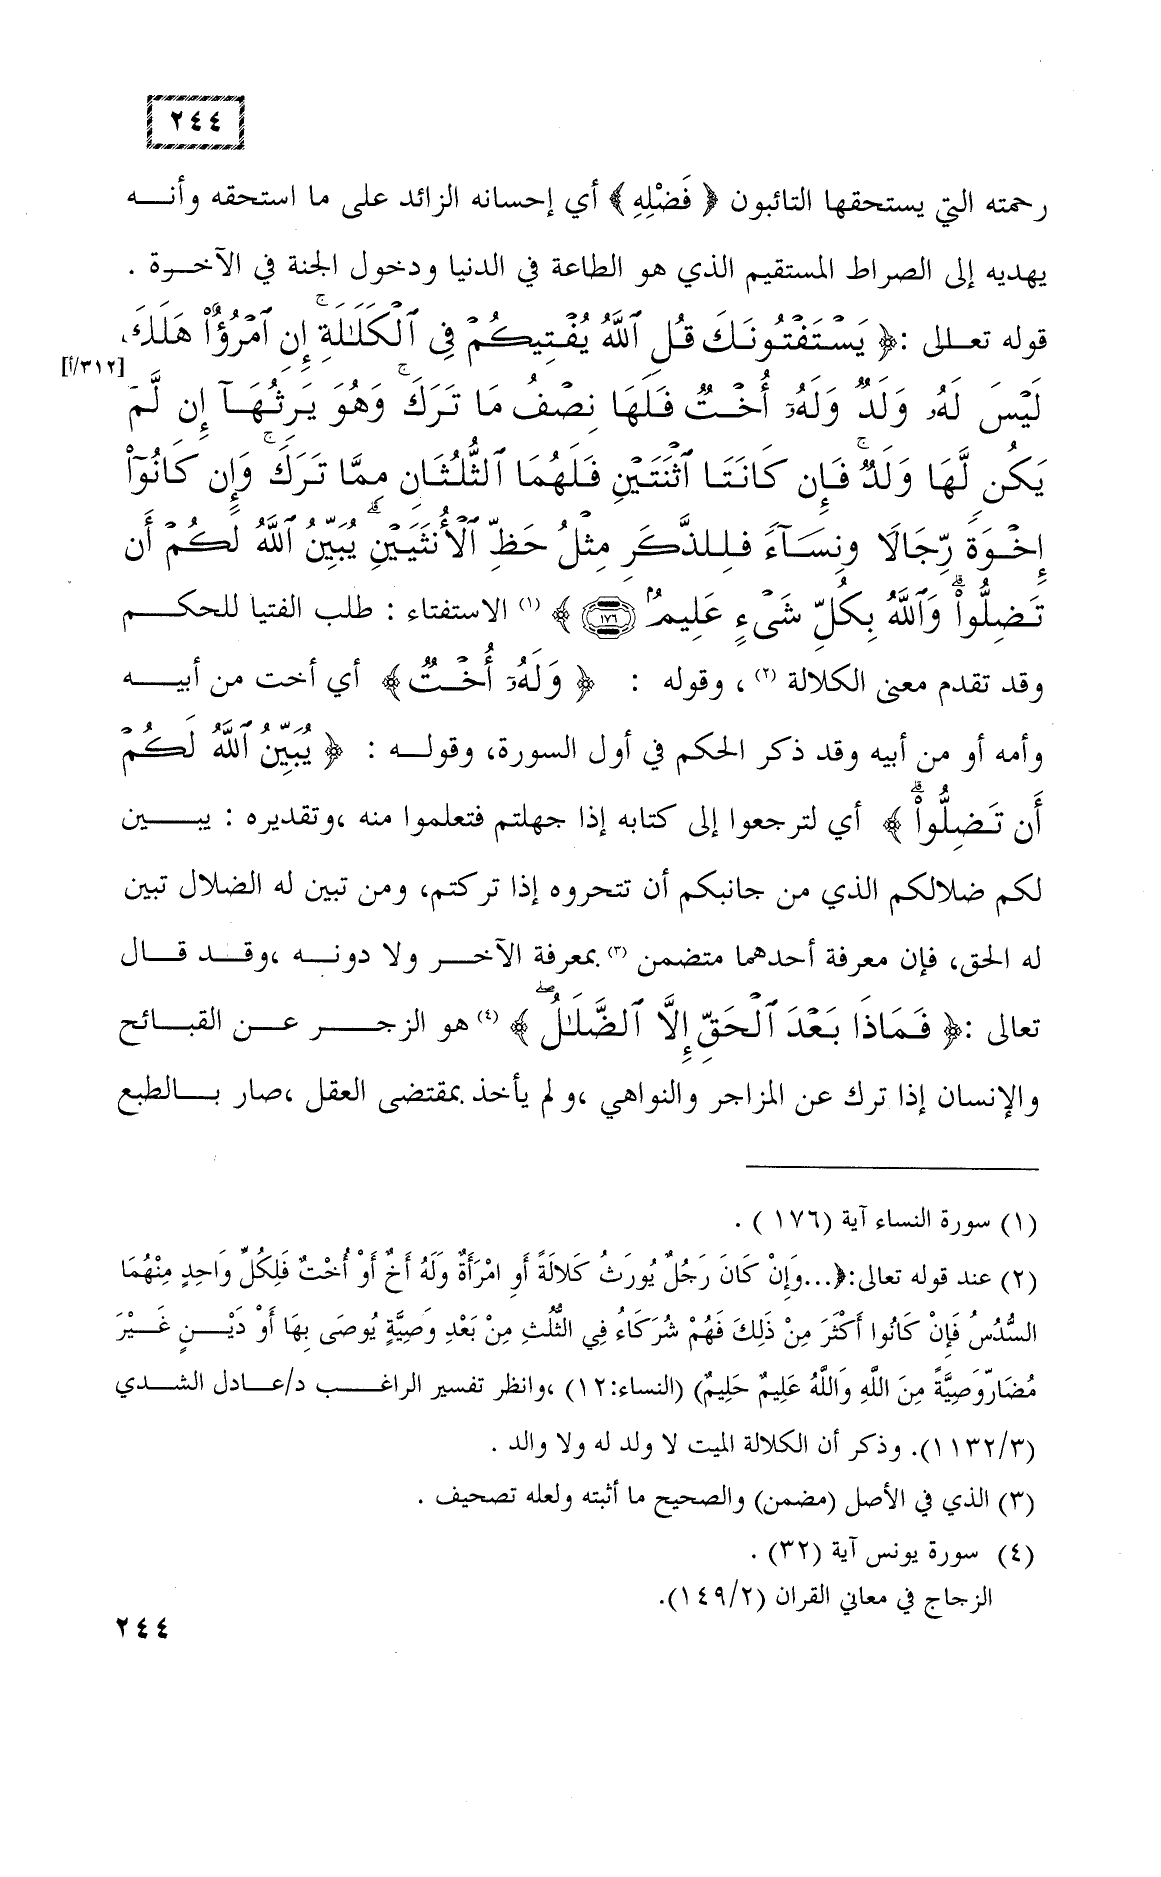 ٢٤٤
رحمته التي يستحقها التائبون ﴿ فَضْلِهِ ﴾ أي إحسانه الزائد على ما استحقه وأنه
يهديه إلى الصراط المستقيم الذي هو الطاعة في الدنيا ودخول الجنة في الآخرة .
قوله تعالى :﴿ يَسْتَفْتُونَكَ قُلِ ٱللَّهُ يُفْتِيكُمْ فِى ٱلْكَلَـٰلَةِ ۚ إِنِ ٱمْرُؤٌا۟ هَلَكَ
[٣١٢/أ]
لَيْسَ لَهُۥ وَلَدٌ وَلَهُۥٓ أُخْتٌ فَلَهَا نِصْفُ مَا تَرَكَ ۚ وَهُوَ يَرِثُهَآ إِن لَّمْ
يَكُن لَّهَا وَلَدٌ ۚ فَإِن كَانَتَا ٱثْنَتَيْنِ فَلَهُمَا ٱلثُّلُثَانِ مِمَّا تَرَكَ ۚ وَإِن كَانُوٓا۟
إِخْوَةً رِّجَالًا وَنِسَآءً فَلِلذَّكَرِ مِثْلُ حَظِّ ٱلْأُنثَيَيْنِ ۗ يُبَيِّنُ ٱللَّهُ لَكُمْ أَن
تَضِلُّوا۟ ۗ وَٱللَّهُ بِكُلِّ شَىْءٍ عَلِيمٌۢ ١٧٦ ﴾ (١) الاستفتاء : طلب الفتيا للحكم
وقد تقدم معنى الكلالة (٢) ، وقوله : ﴿ وَلَهُۥٓ أُخْتٌ ﴾ أي أخت من أبيه
وأمه أو من أبيه وقد ذكر الحكم في أول السورة، وقوله : ﴿ يُبَيِّنُ ٱللَّهُ لَكُمْ
أَن تَضِلُّوا۟ ۗ ﴾ أي لترجعوا إلى كتابه إذا جهلتم فتعلموا منه ،وتقديره : يبين
لكم ضلالكم الذي من جانبكم أن تتحروه إذا تركتم، ومن تبين له الضلال تبين
له الحق، فإن معرفة أحدهما متضمن (٣) بمعرفة الآخر ولا دونه ،وقد قال
تعالى :﴿ فَمَاذَا بَعْدَ ٱلْحَقِّ إِلَّا ٱلضَّلَـٰلُ ۖ ﴾ (٤) هو الزجر عن القبائح
والإنسان إذا ترك عن المزاجر والنواهي ،ولم يأخذ بمقتضى العقل ،صار بالطبع
(١) سورة النساء آية (١٧٦ ) .
(٢) عند قوله تعالى:﴿...وَإِنْ كَانَ رَجُلٌ يُورَثُ كَلالَةً أَوِ امْرَأَةٌ وَلَهُ أَخٌ أَوْ أُخْتٌ فَلِكُلِّ وَاحِدٍ مِنْهُمَا
السُّدُسُ فَإِنْ كَانُوا أَكْثَرَ مِنْ ذَلِكَ فَهُمْ شُرَكَاءُ فِي الثُّلُثِ مِنْ بَعْدِ وَصِيَّةٍ يُوصَى بِهَا أَوْ دَيْنٍ غَيْرَ
مُضَارٍّوَصِيَّةً مِنَ اللَّهِ وَاللَّهُ عَلِيمٌ حَلِيمٌ) (النساء:١٢) ،وانظر تفسير الراغب د/عادل الشدي
(١١٣٢/٣). وذكر أن الكلالة الميت لا ولد له ولا والد .
(٣) الذي في الأصل (مضمن) والصحيح ما أثبته ولعله تصحيف .
(٤) سورة يونس آية (٣٢) .
الزجاج في معاني القران (١٤٩/٢).
٢٤٤